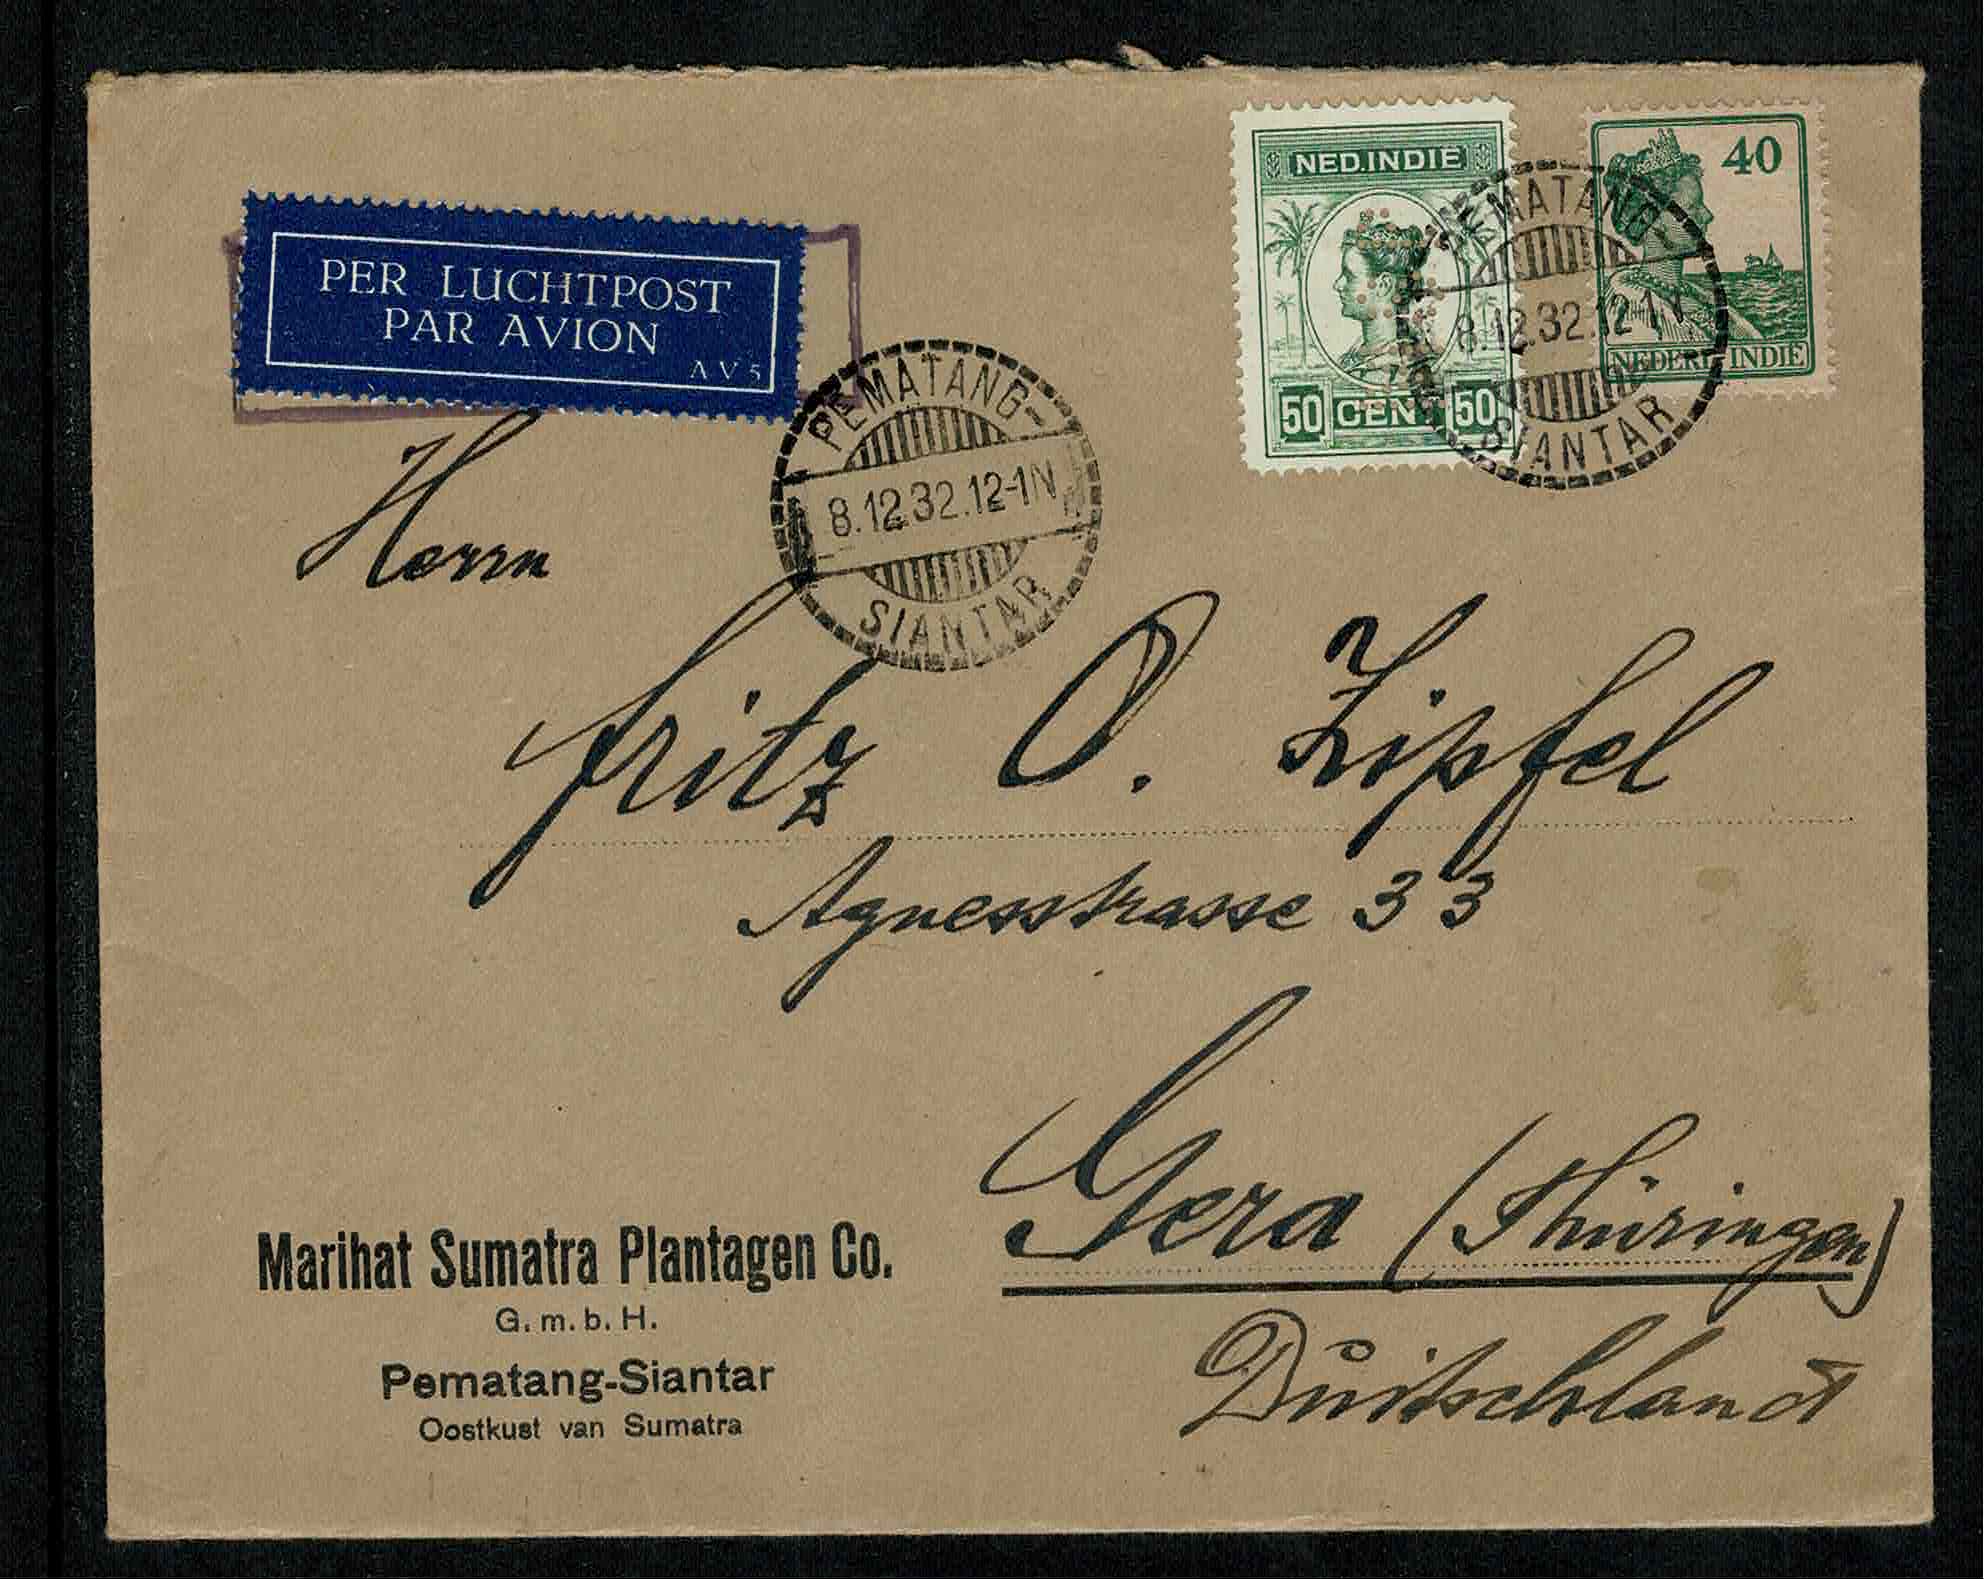 PER LUCHTPOST
PAR AVION
AV5
NED.INDIE
50 CENT 50
40
NEDERL INDIE
PEMATANG-
8.12.32.12-1N
SIANTAR
PEMATANG-
8.12.32.12-1N
SIANTAR
Herrn
Fritz O. Zipfel
Agnesstrasse 33
Gera (Thüringen)
Duitschland
Marihat Sumatra Plantagen Co.
G. m. b. H.
Pematang-Siantar
Oostkust van Sumatra